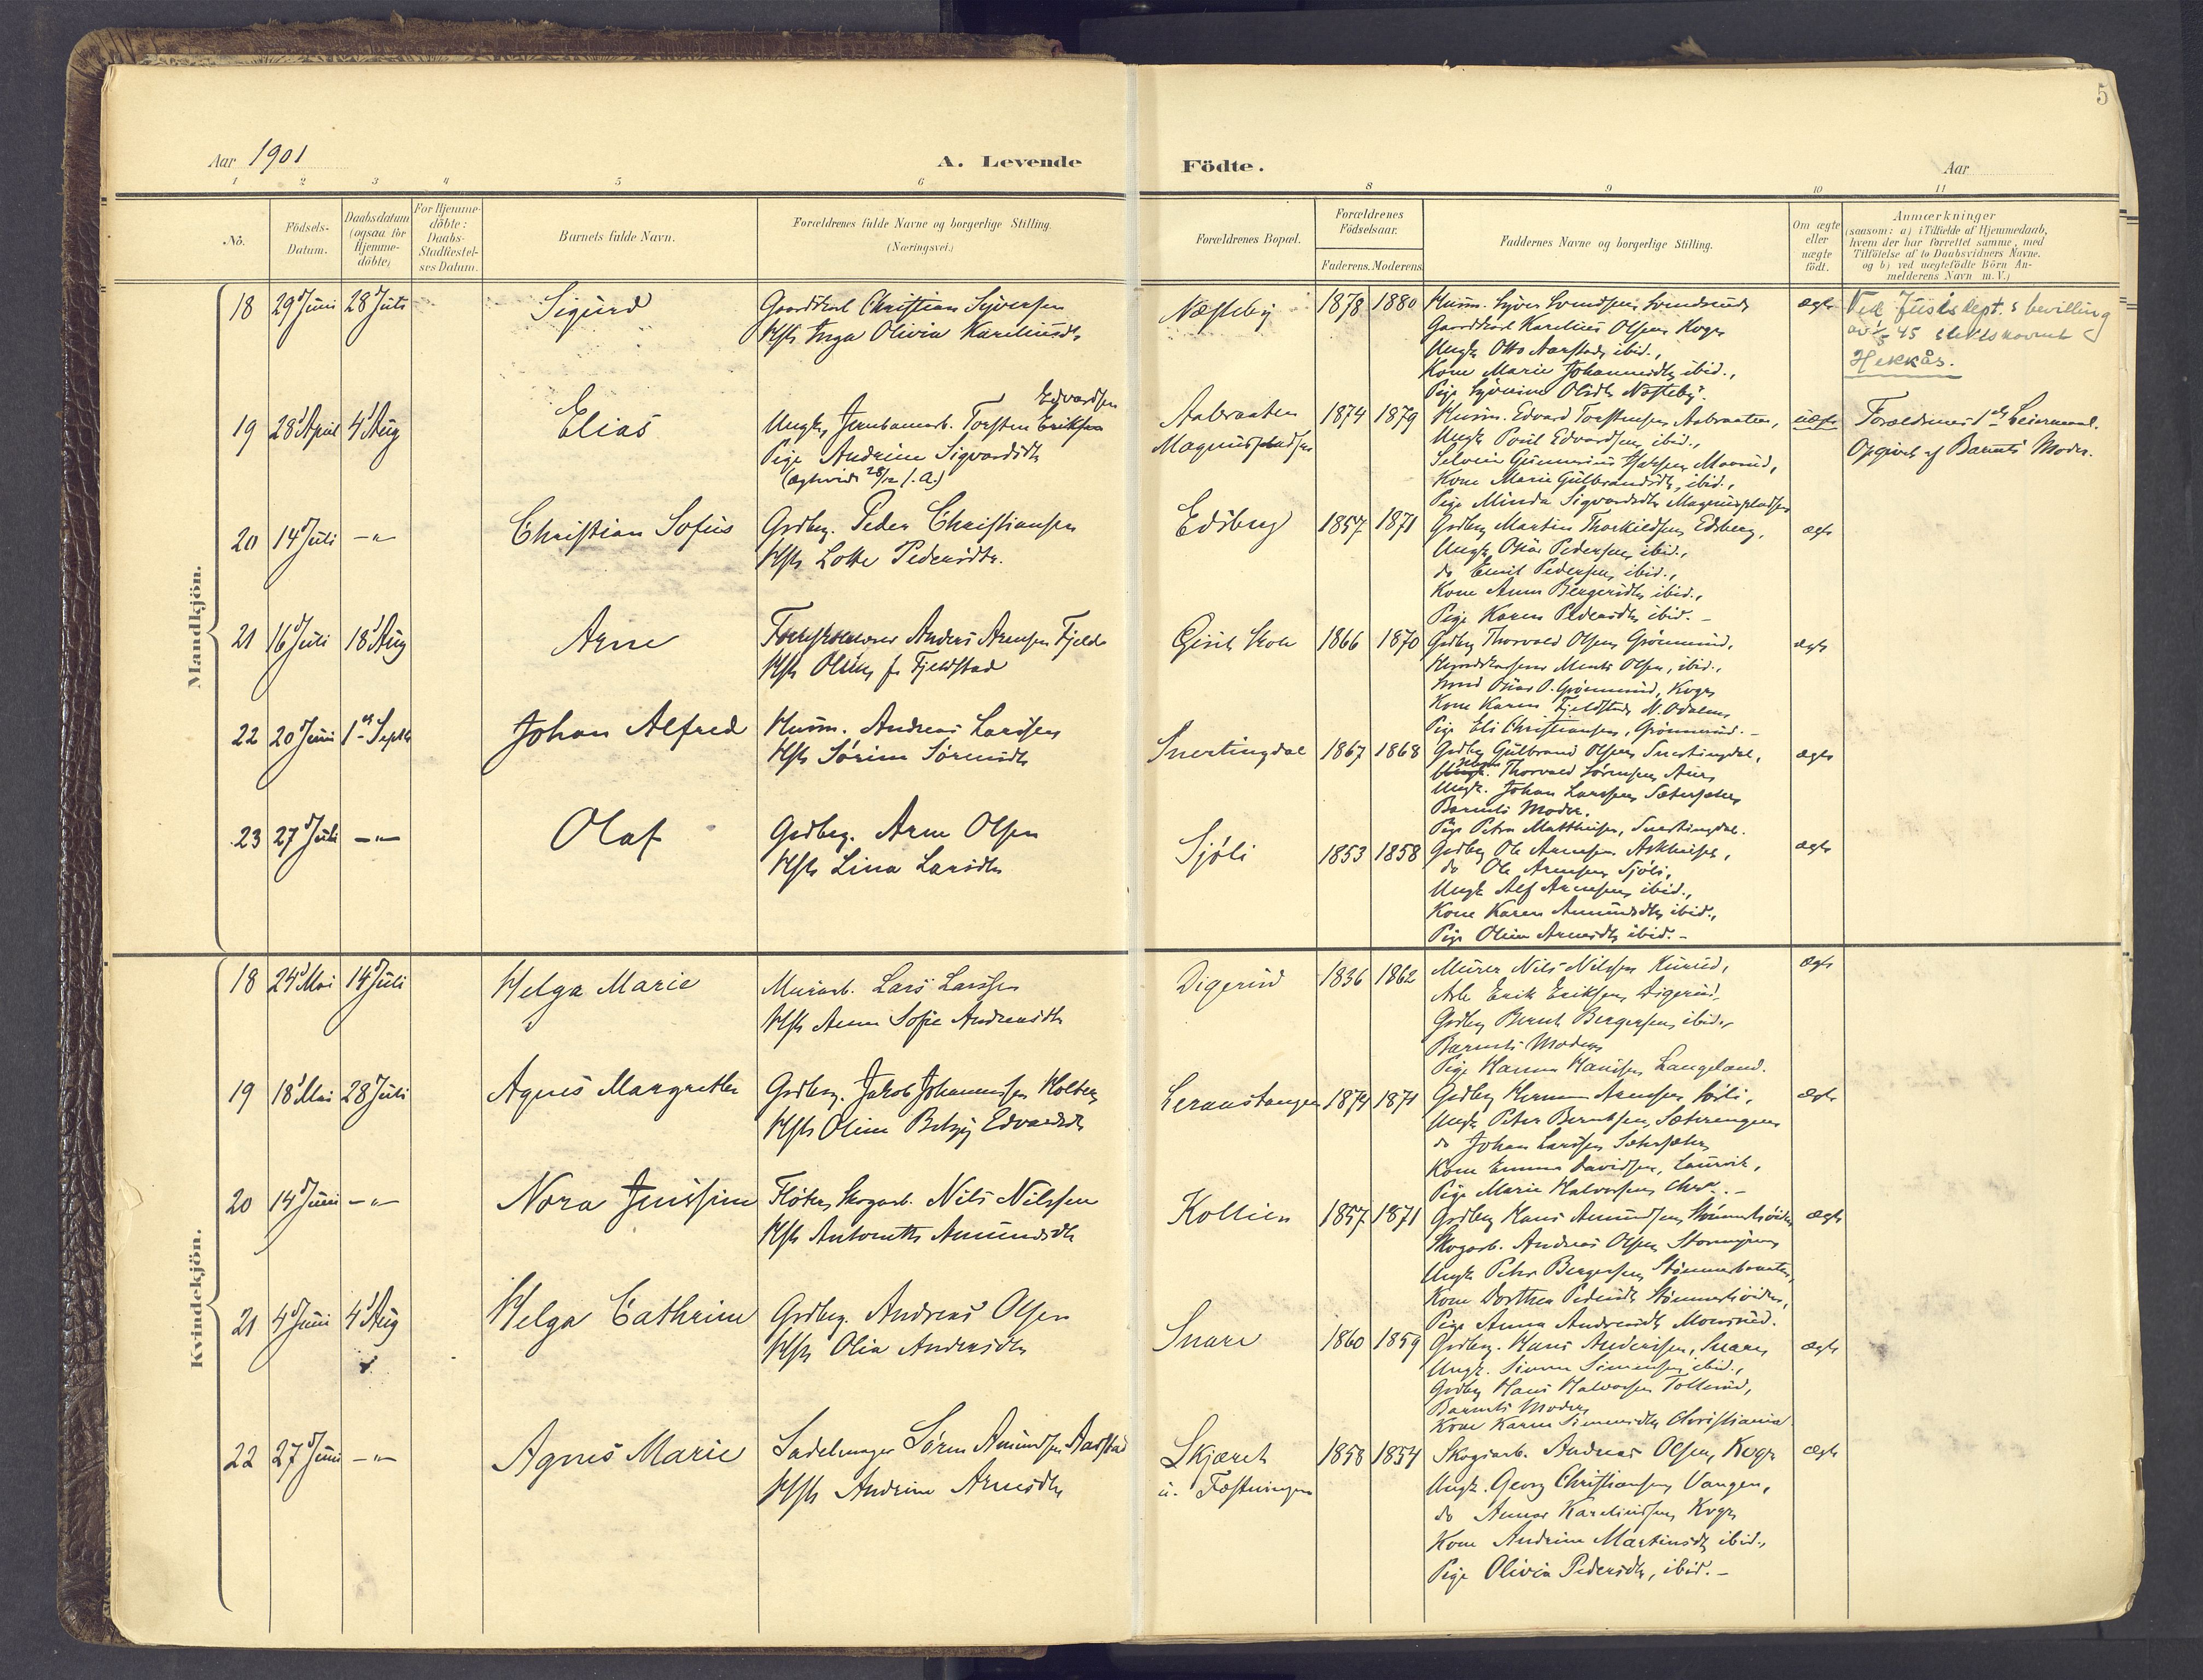 5
Aar 1901
A. Levende Födte.
Aar
1 2 3 4 5 6 8 9 10 11
No.
Födsels-Datum.
Daabsdatum (ogsaa for Hjemme-döbte)
For Hjemme-döbte: Daabs-Stadfæstel-ses Datum.
Barnets fulde Navn.
Forældrenes fulde Navne og borgerlige Stilling.
(Næringsvei.)
Forældrenes Bopæl.
Forældrenes Födselsaar.
Faderens. Moderens.
Faddernes Navne og borgerlige Stilling.
Om ægte eller uægte födt.
Anmærkninger
(saasom: a) i Tilfælde af Hjemmedaab,
hvem der har forrettet samme, med
Tilföielse af to Daabsvidners Navne.
og b) ved uægtefödte Börn An-
melderens Navn m. V.)
Mandkjön.
18 29 Juni 28 Juli Sigurd
Gaardkarl Christian Syversen
Hst Inga Olivia Kareliusdtr
Næsteby 1878 1880
Husm. Syver Svendsen
Gaardkarl Karelius Olsen, Kogr
Ungk Otto Aarstad, ibid.,
Kone Marie Johannesdtr ibid.,
Pige Olsdtr Næsteby.
ægte
Ved Justisdept.s bevilling
45 slektsnavnet
Hekkås.
19 28 April 4 Aug Elias
Edvardsen
Ungk, Jernbanearb. Torsten Eriksen
Pige Andrine Sigvardsdtr
Aabraaten
Magnuspladsen
1874 1879
Husm. Edvard Torstensen, Aabraaten,
Ungk Poul Edvardsen, ibid.,
Kone Marie Gulbrandsdtr, ibid.,
Pige Minda Sigvardsdtr Magnuspladsen
uægte
Forældrenes 1ste Leiermaal.
Opgivet af Barnets Moder.
20 14 Juli -"- Christian Sofus
Grdbrg. Peder Christiansen
Hst Lotte Pedersdtr.
Edsberg 1857 1871
Grdbrg Martin Thorkildsen, Edsberg,
Ungk Oskar Pedersen, ibid.,
do Emil Pedersen, ibid.,
Kone Anna Bergersdtr, ibid.,
Pige Karen Pedersdtr ibid. -
ægte
21 16 Juli 18 Aug Arne
Anders Arnesen Fjelde
Hst Oline f. Fjeldstad
1866 1870
Grdbrg Thorvald Olsen Grönnerud,
Olsen, ibid.,
Oskar O. Grönnerud, Kogr
Kone Karen Fjeldstad, N. Odalen,
Pige Eli Christiansen, Grönnerud. -
ægte
22 20 Juni 1ste Septbr Johan Alfred
Husm. Andreas Larssen
Hst Sörine Sörensdtr
Snertingdal 1867 1868
Grdbrg Gulbrand Olsen, Snertingdal,
Thorvald Sörensen
Ungk. Johan Larssen
Barnets Moder.
Pige Petra Matthisen, Snertingdal.
ægte
23 27 Juli -"- Olaf
Grdbrg. Arne Olsen
Hst Lina Larsdtr
Sjöli 1853 1858
Grdbrg Ole Arnesen
do Ole Arnesen Sjöli,
Ungk Alf Arnesen ibid.,
Kone Karen Amundsdtr, ibid.,
Pige Oline Arnesdtr ibid. -
ægte
Kvindekjön.
18 24 Mai 14 Juli Helga Marie
Murarb. Lars Larssen
Hst Anna Sofie Andreasdtr
Digerud 1836 1862
Murer Nils Nilssen
Arb Erik Eriksen, Digerud,
Grdbrg Bernt Bergersen, ibid.,
Barnets Moder,
Pige Hanna Hansen Langeland.
ægte
19 18 Mai 28 Juli Agnes Margrethe
Grdbrg. Jakob Johannessen Holter
Hst Oline Betzy Edvardsdtr
1874 1871
Grdbrg Herman Arnesen Sjöli,
Ungk Peter Berntsen, Sæterengen
do Johan Larssen
Kone Emma Davidsen, Laurvik,
Pige Marie Halvorsen, Chra. -
ægte
20 14 Juni -"- Nora Jussine
Flöter, Skogarb. Nils Nilssen
Hst Antonette Amundsdtr
Kollien 1857 1871
Grdbrg Hans Amundsen
Skogarb. Andreas Olsen Stormyren
Ungk Peter Bergersen
Kone Dorthea Pedersdtr
Pige Anna Andreasdtr
ægte
21 4 Juni 4 Aug Helga Cathrine
Grdbrg. Andreas Olsen
Hst Olia Andersdtr
Snare 1860 1859
Grdbrg. Hans Andersen, Snare,
Ungk. Simon Simensen, ibid.,
Grdbrg Hans Halvorsen Tollerud,
Barnets Moder,
Kone Karen Simensdtr Christiania
ægte
22 27 Juni -"- Agnes Marie
Sadelmager Sören Amundsen Aarstad
Hst Andrine Arnesdtr
Skjæret
u. Fæstningen
1858 1854
Skogsarb. Andreas Olsen, Kogr
Ungk. Georg Christiansen, Vangen,
do Annar Kareliussen, Kogr
Kone Andrine Martinsdtr, ibid.,
Pige Olivia Pedersdtr, ibid. -
ægte